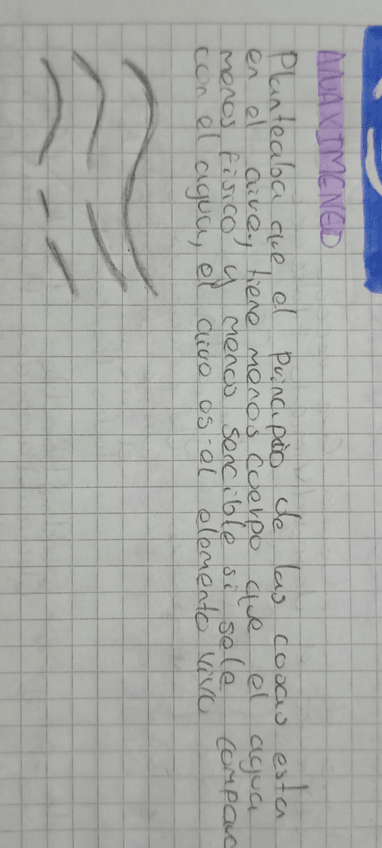 ANAXIMENED
Planteaba que el principio de las cosas esta
en el aire, tiene menos cuerpo que el agua
menos fisico y menos sencible si sele compara
con el agua, el aire es el elemento vivo